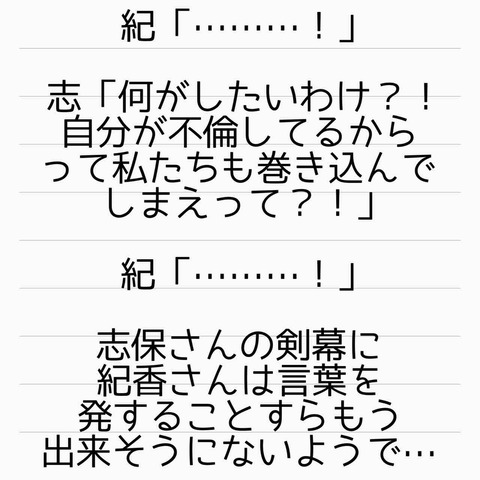 紀「………！」
志「何がしたいわけ？！
自分が不倫してるから
って私たちも巻き込んで
しまえって？！」
紀「………！」
志保さんの剣幕に
紀香さんは言葉を
発することすらもう
出来そうにないようで…